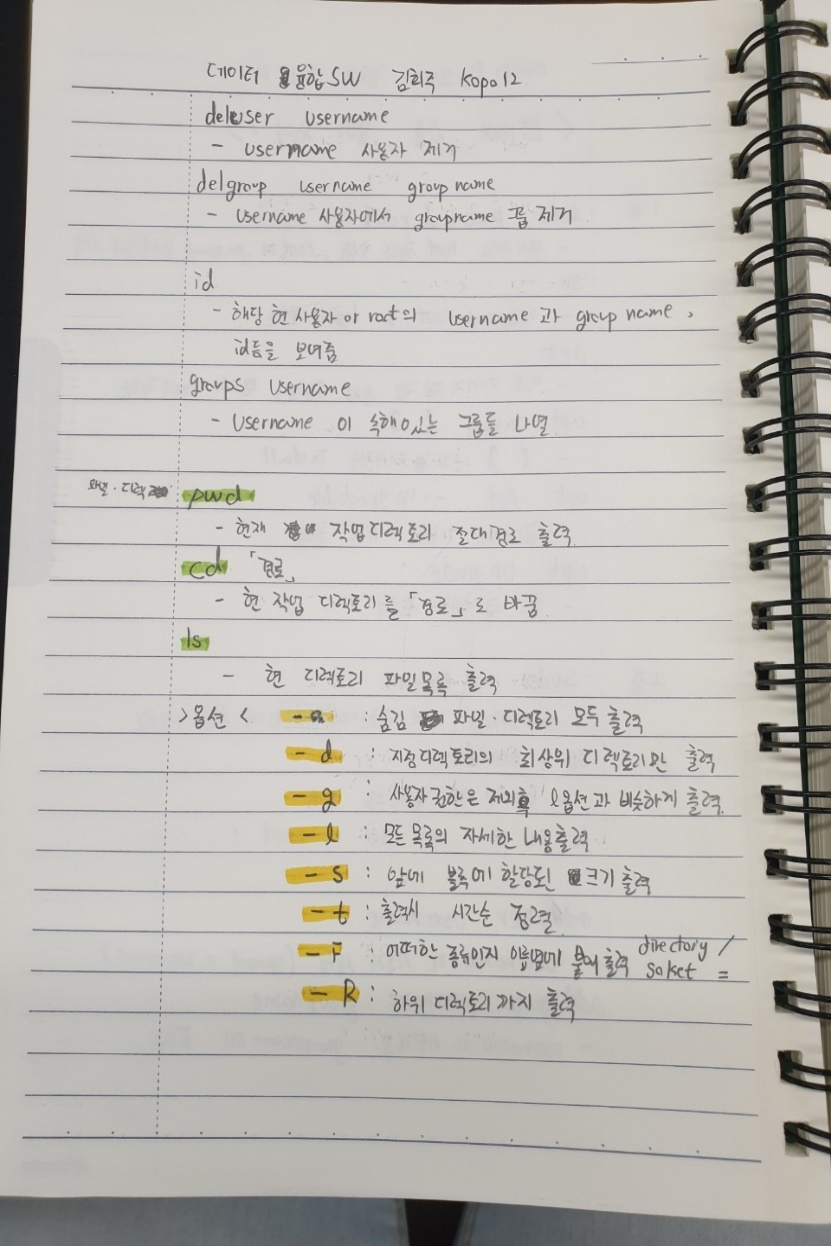 데이터 융합SW 김희주 kopo12
deluser username
- username 사용자 제거
delgroup username groupname
- username 사용자에서 groupname 그룹 제거
id
- 해당 현 사용자 or root의 username 과 group name,
id등을 보여줌
groups username
- username 이 속해있는 그룹들 나열
파일·디렉 pwd
- 현재 작업디렉토리 절대경로 출력.
cd 「경로」
- 현 작업 디렉토리를 「경로」로 바꿈.
ls
- 현 디렉토리 파일목록 출력
>옵션< - a : 숨김 파일·디렉토리 모두 출력
- d : 지정디렉토리의 최상위 디렉토리만 출력
- g : 사용자 권한은 제외 l옵션과 비슷하게 출력.
- l : 모든 목록의 자세한 내용출력
- s : 앞에 블록에 할당된 크기 출력
- t : 출력시 시간순 정렬.
- F : 어떠한 종류인지 이름옆에 붙여 출력 directory /
soket =
- R : 하위 디렉토리까지 출력